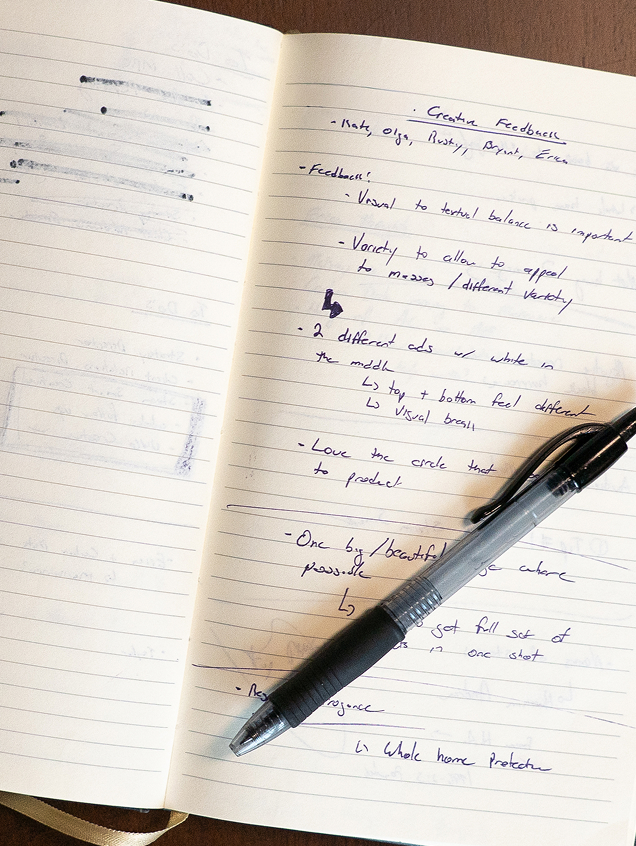 · Creative Feedback
- Kate, Olga, Rusty, Bryant, Erica
- Feedback!
- Visual to textual balance is important
- Variety to allow to appeal
to masses / different variety
↳
- 2 different ads w/ white in
the middle
↳ top + bottom feel different
↳ visual break
- Love the circle that
to product
- One big/beautiful where
possible
↳
get full set of
in one shot
-
↳ Whole home Protection